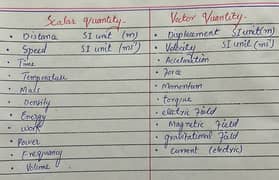 Scalar quantity. Vector Quantity.
• Distance SI unit (m) • Displacement SI unit(m)
• Speed SI unit (ms¹) • Velocity SI unit (ms¹)
• Time • Acceleration
• Temperature • Force
• Mass • Momentum
• Density • torque
• Energy • electric Field
• Work • Magnetic Field
• Power • gravitational Field
• Frequency • current (electric)
• Volume